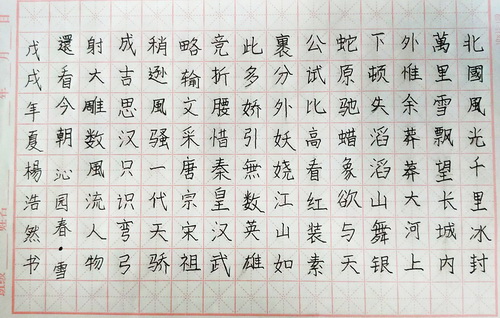 北國風光千里冰封
萬里雪飘望长城内
外惟余莽莽大河上
下顿失滔滔山舞银
蛇原驰蜡象欲与天
公试比高看红装素
裹分外妖娆江山如
此多娇引無数英雄
竞折腰惜秦皇汉武
略输文采唐宗宋祖
稍逊風骚一代天骄
成吉思汉只识弯弓
射大雕数風流人物
還看今朝沁园春·雪
戊戌年夏楊浩然书